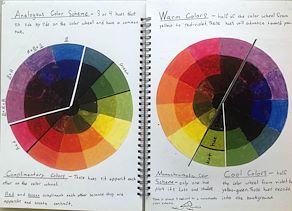 Analogous Color Scheme - 3 or 4 hues that
sit side by side on the color wheel and have a common
hue.
Complimentary Colors - These hues sit opposite each
other on the color wheel.
Red and Green compliment each other because they are
opposites and create contrast.
Warm Colors - half of the color wheel from
yellow to red-violet. These hues will advance toward you.
Monochromatic Color
Scheme - only one hue
plus its tints and shades
Cool Colors - half
the color wheel from violet to
yellow-green. These hues recede
into the background.